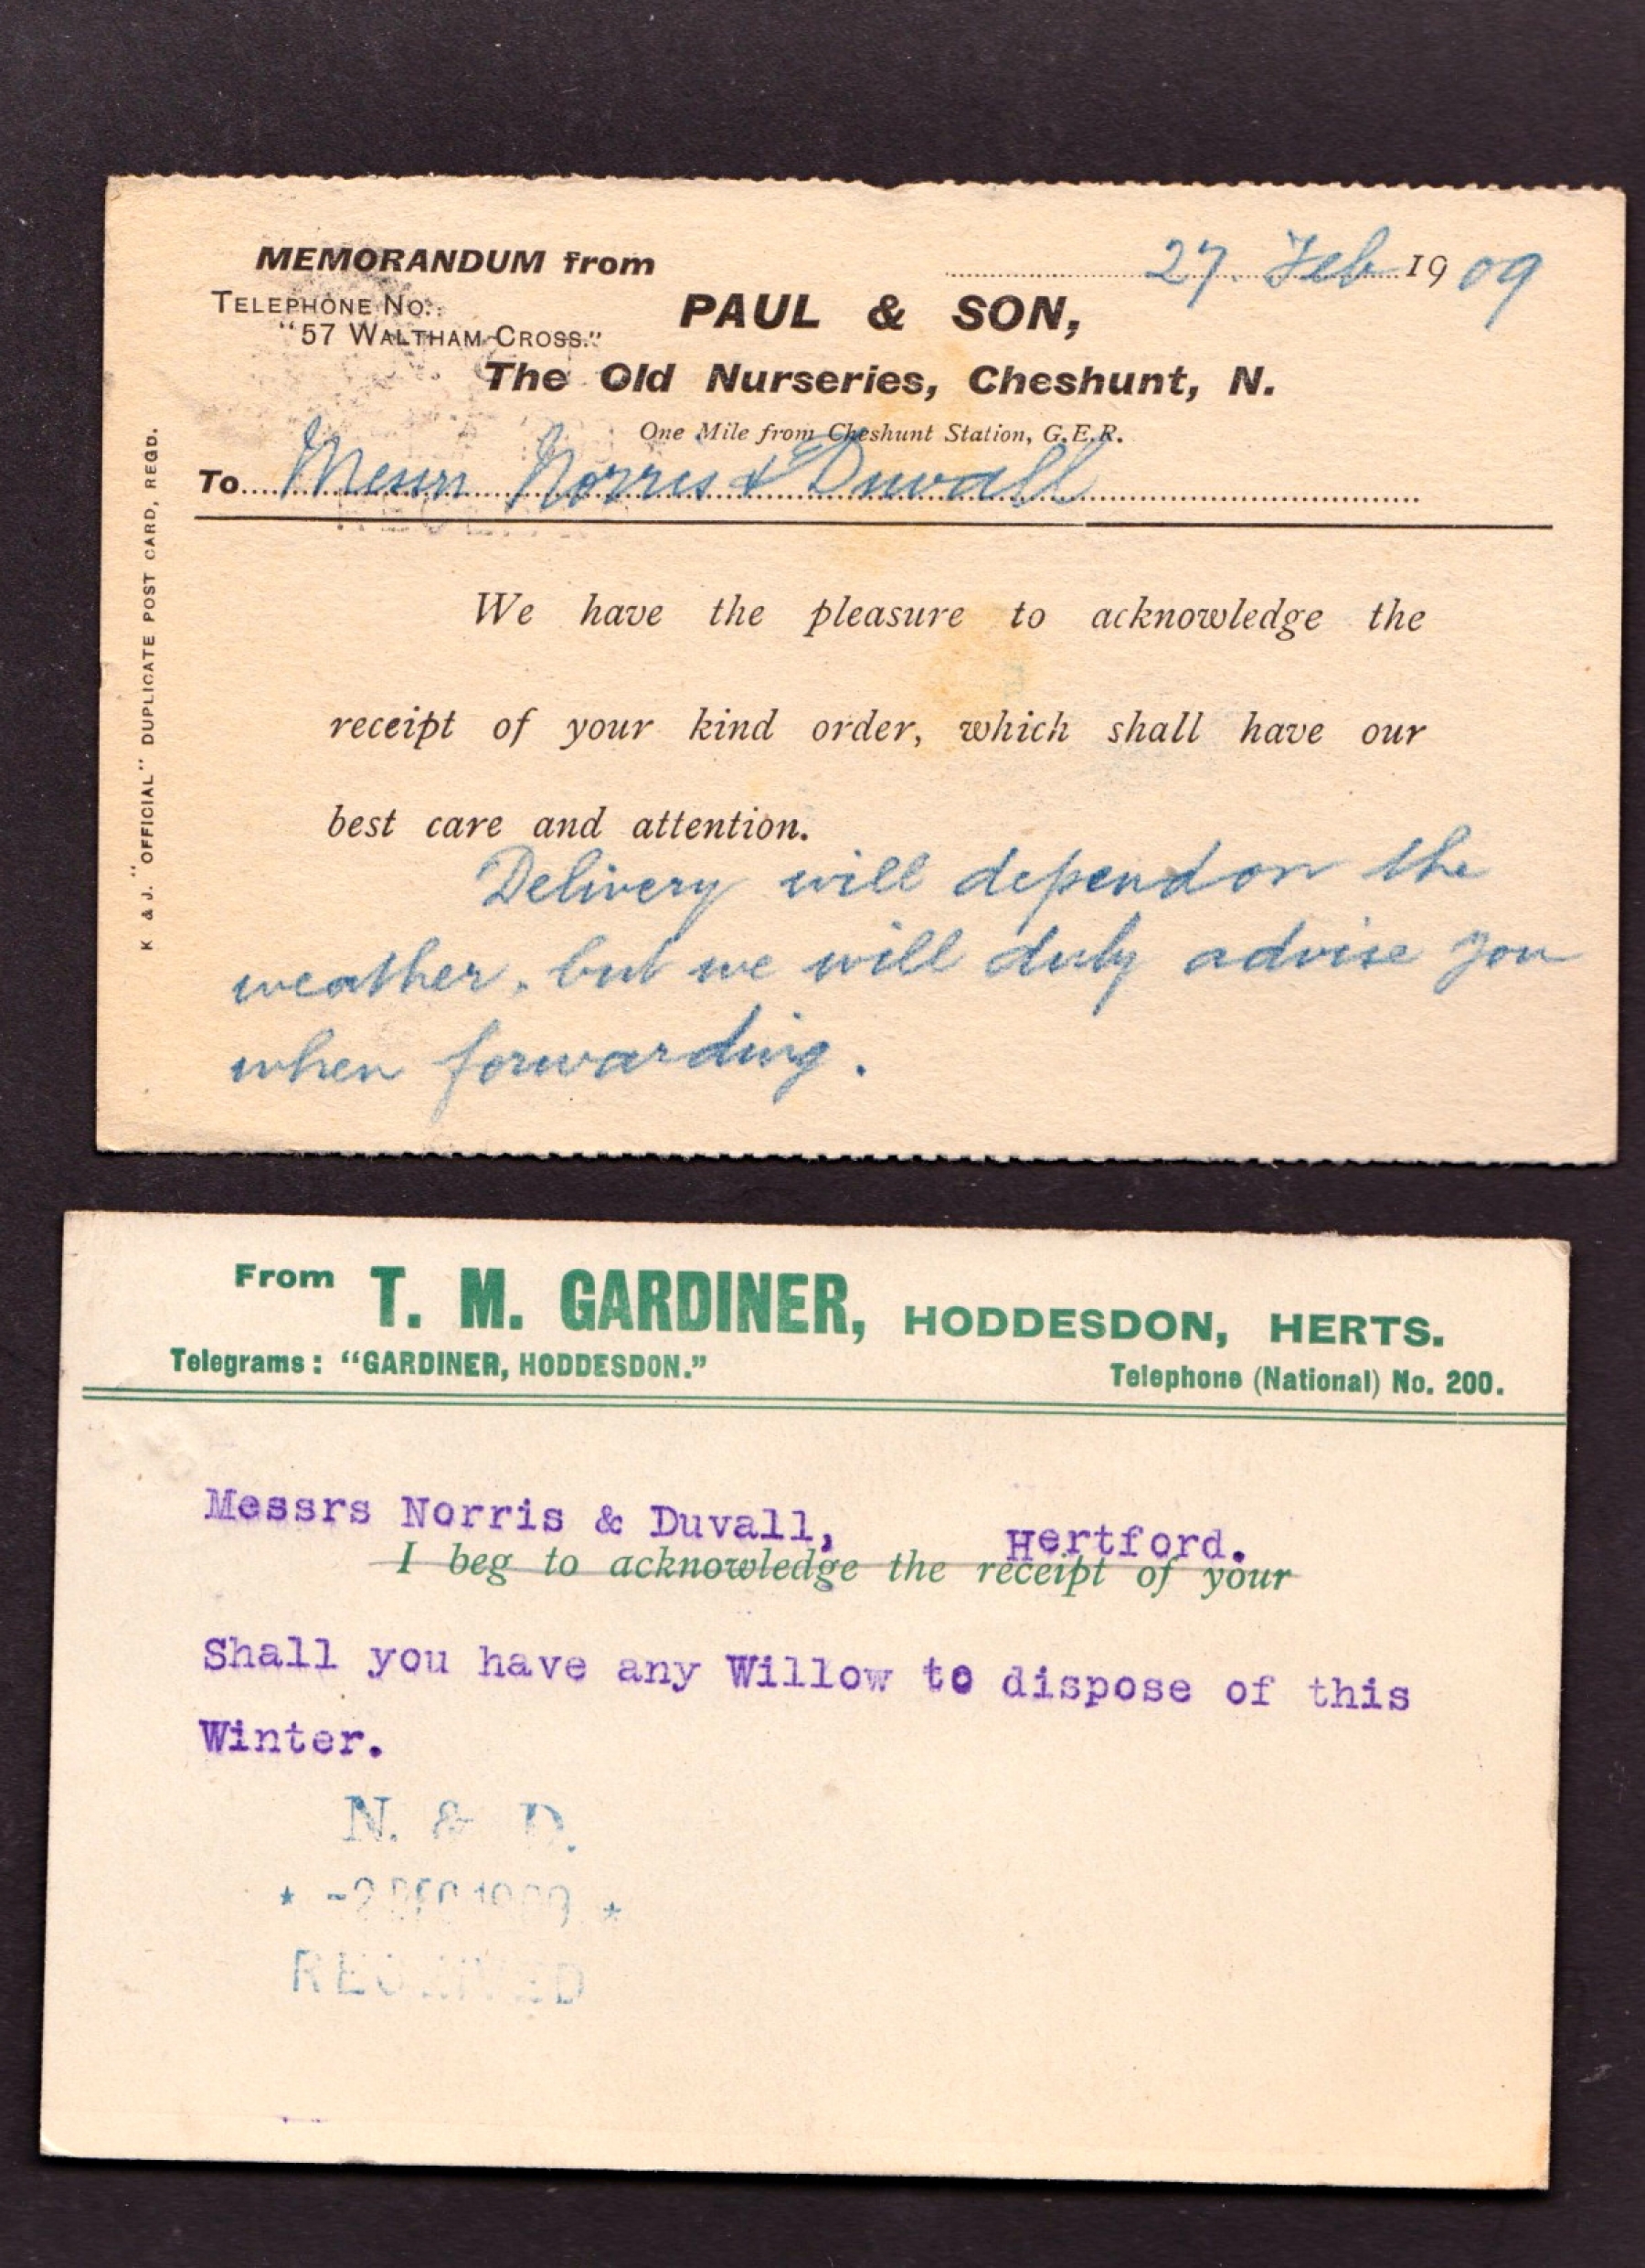 MEMORANDUM from
27. Feb 1909
TELEPHONE No.:
"57 WALTHAM CROSS."
PAUL & SON,
The Old Nurseries, Cheshunt, N.
One Mile from Cheshunt Station, G.E.R.
To Messrs Norris & Duvall
K & J. "OFFICIAL" DUPLICATE POST CARD, REGD.
We have the pleasure to acknowledge the
receipt of your kind order, which shall have our
best care and attention.
Delivery will depend on the
weather, but we will duly advise you
when forwarding.
From T. M. GARDINER, HODDESDON, HERTS.
Telegrams: "GARDINER, HODDESDON."
Telephone (National) No. 200.
Messrs Norris & Duvall, Hertford.
I beg to acknowledge the receipt of your
Shall you have any Willow to dispose of this
Winter.
N. & D.
* -2 DEC 1909 *
RECEIVED